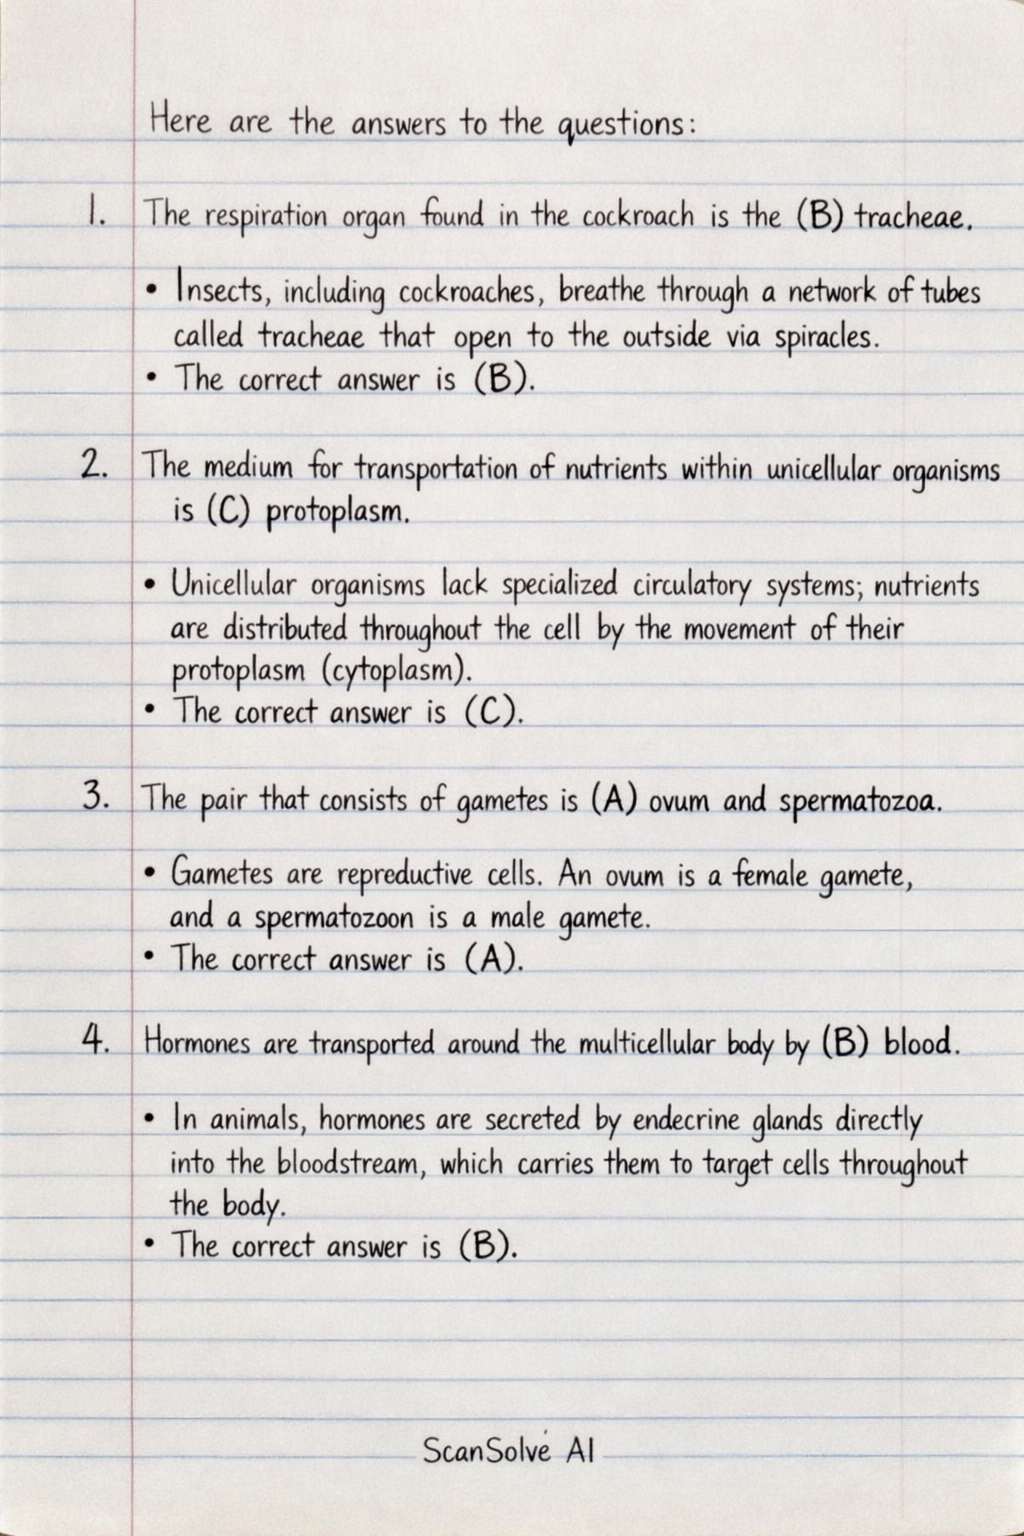 Here are the answers to the questions:
1. The respiration organ found in the cockroach is the (B) tracheae.
• Insects, including cockroaches, breathe through a network of tubes
called tracheae that open to the outside via spiracles.
• The correct answer is (B).
2. The medium for transportation of nutrients within unicellular organisms
is (C) protoplasm.
• Unicellular organisms lack specialized circulatory systems; nutrients
are distributed throughout the cell by the movement of their
protoplasm (cytoplasm).
• The correct answer is (C).
3. The pair that consists of gametes is (A) ovum and spermatozoa.
• Gametes are repreductive cells. An ovum is a female gamete,
and a spermatozoon is a male gamete.
• The correct answer is (A).
4. Hormones are transported around the multicellular body by (B) blood.
• In animals, hormones are secreted by endecrine glands directly
into the bloodstream, which carries them to target cells throughout
the body.
• The correct answer is (B).
ScanSolve AI